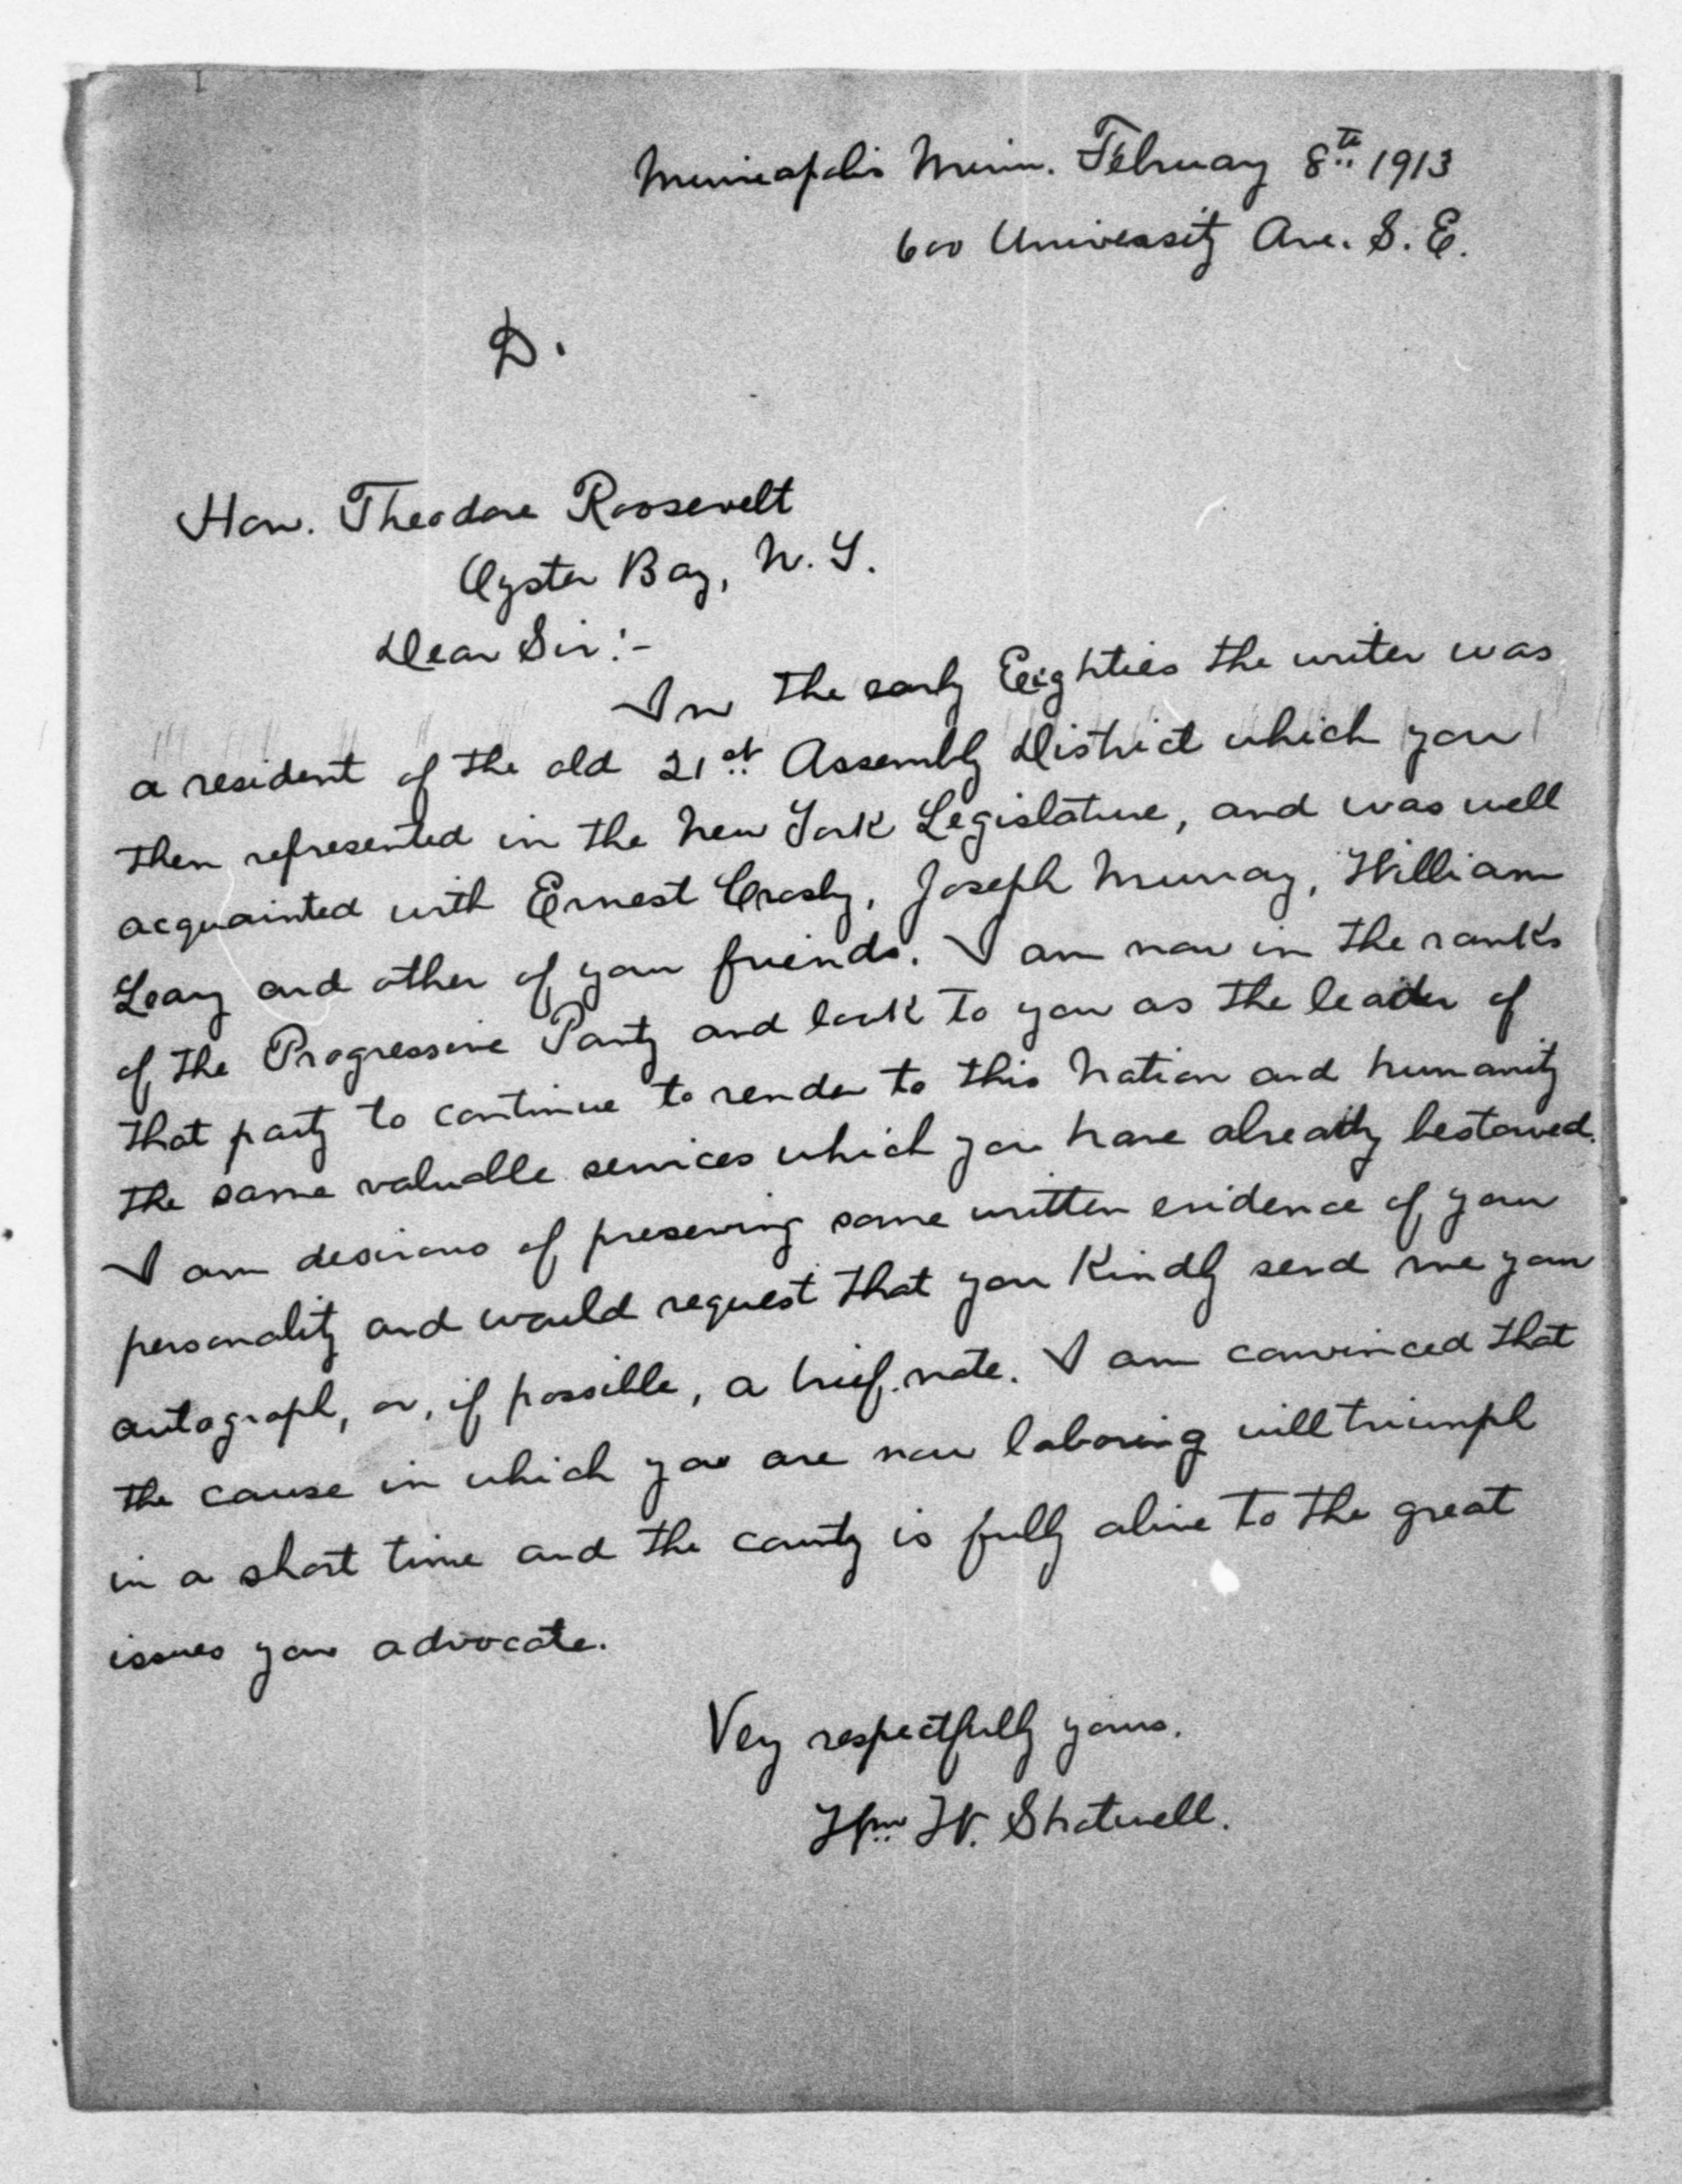 Minneapolis Minn. February 8th 1913
600 University Ave. S. E.
D.
Hon. Theodore Roosevelt
Oyster Bay, N. Y.
Dear Sir:-
In the early Eighties the writer was
a resident of the old 21st Assembly District which you
then represented in the New York Legislature, and was well
acquainted with Ernest Crosby, Joseph Murray, William
Leary and other of your friends. I am now in the ranks
of the Progressive Party and look to you as the leader of
that party to continue to render to this Nation and humanity
the same valuable services which you have already bestowed.
I am desirous of preserving some written evidence of your
personality and would request that you kindly send me your
autograph, or, if possible, a brief note. I am convinced that
the cause in which you are now laboring will triumph
in a short time and the county is fully alive to the great
issues you advocate.
Very respectfully yours.
Wm W. Shotwell.